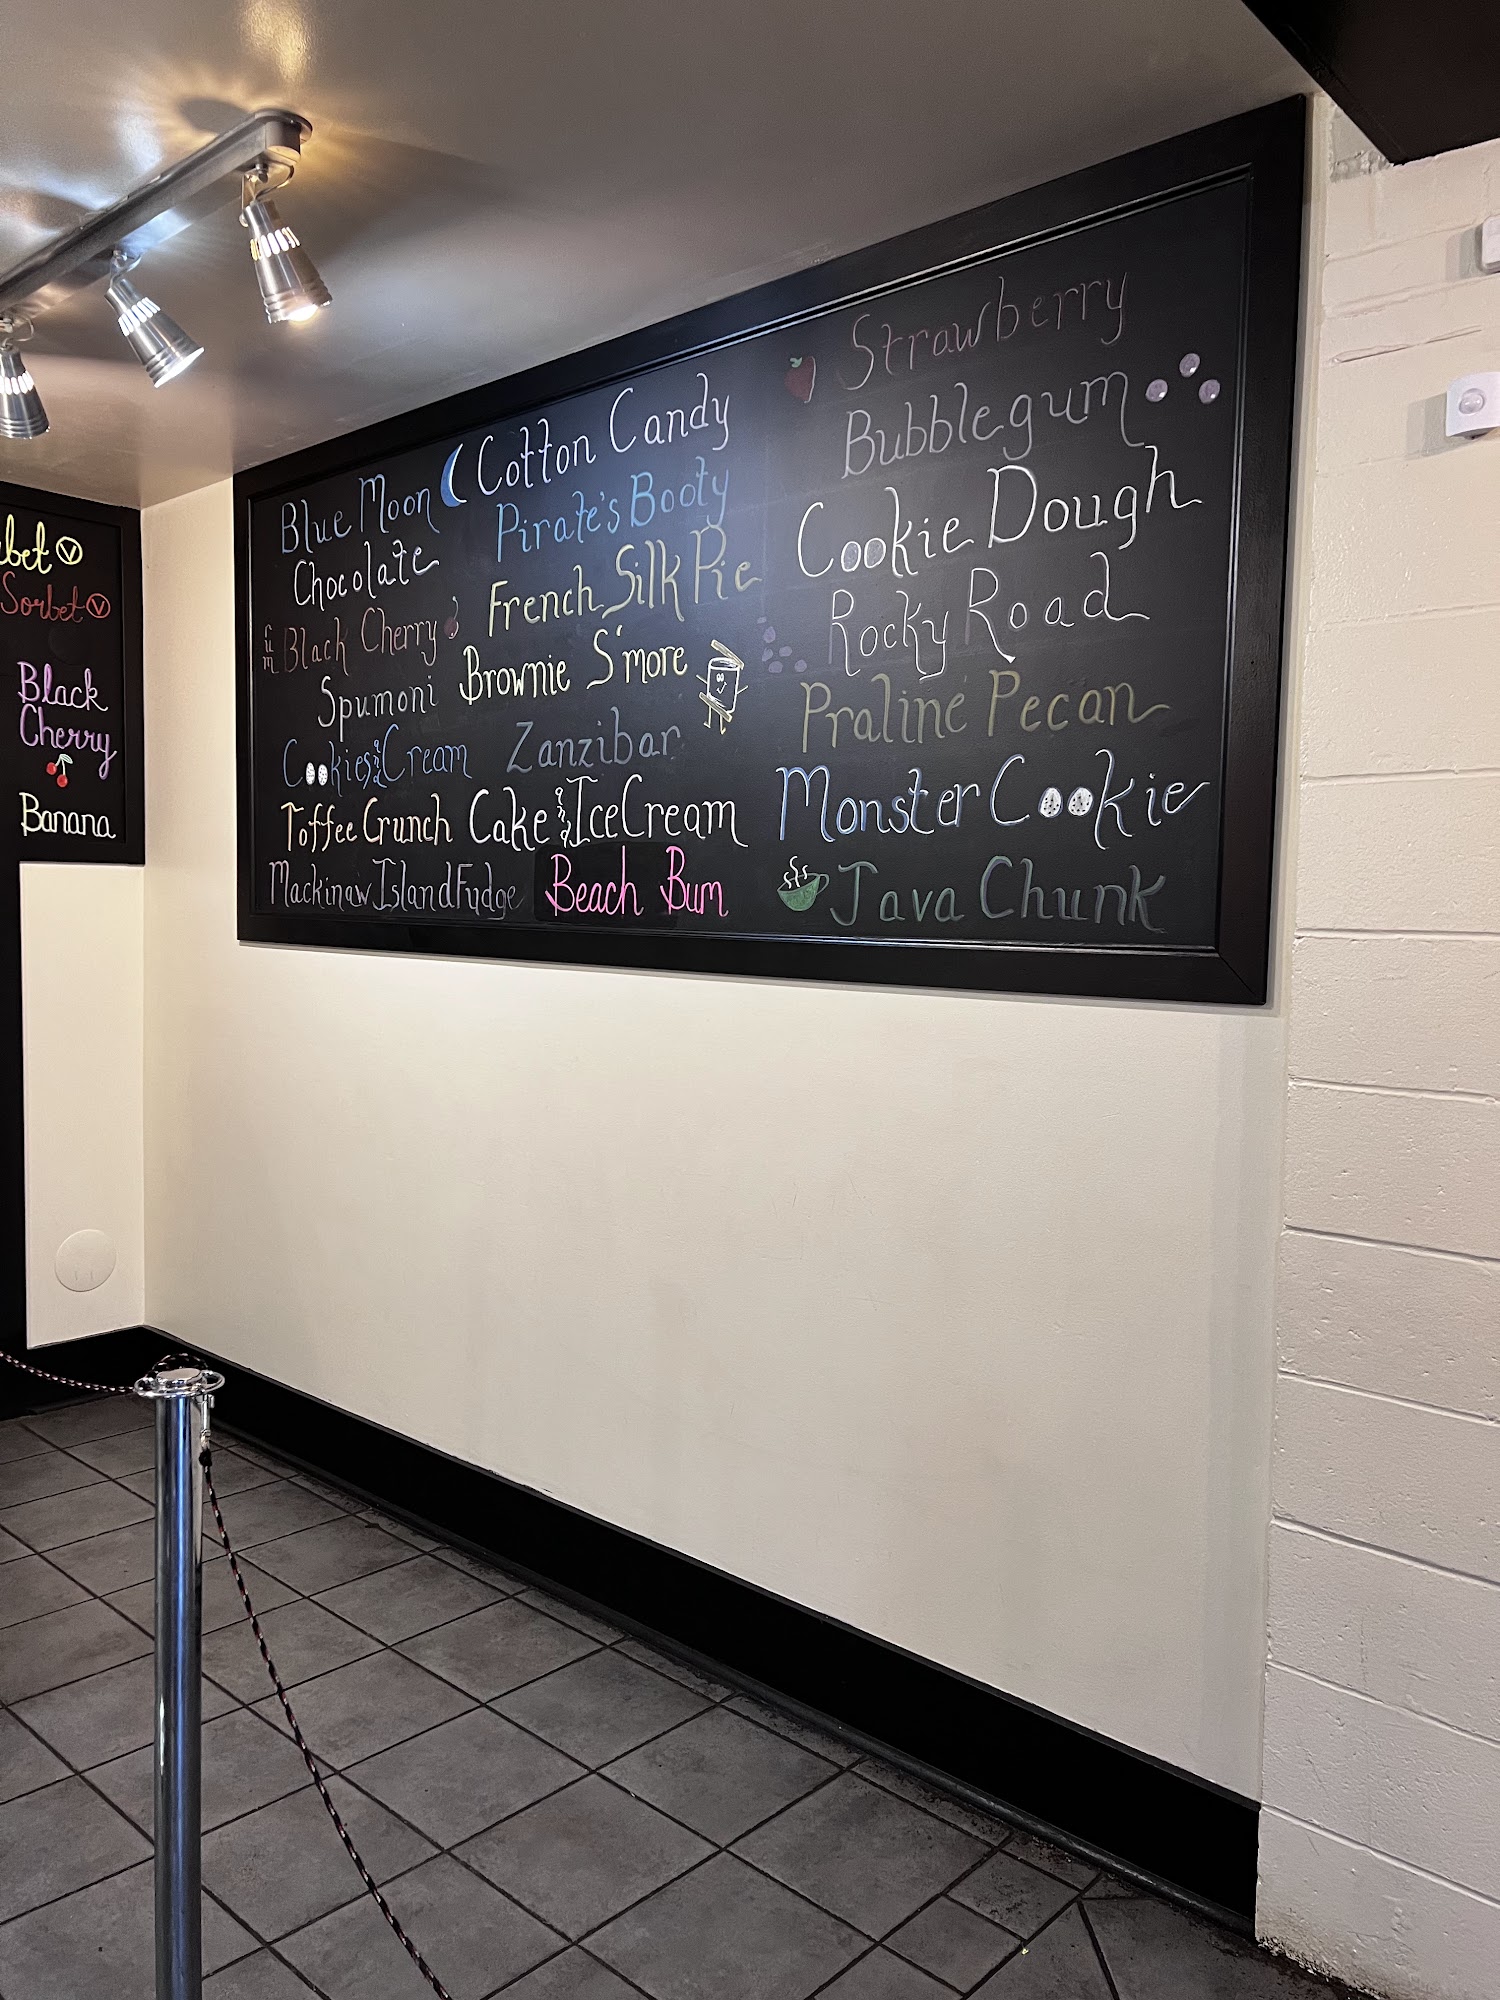 Sorbet Ⓥ
Black
Cherry
Banana
Blue Moon
Chocolate
Black Cherry
Spumoni
Cookies and Cream
Toffee Crunch
Mackinaw Island Fudge
Cotton Candy
Pirate's Booty
French Silk Pie
Brownie S'more
Zanzibar
Cake and Ice Cream
Beach Bum
Strawberry
Bubblegum
Cookie Dough
Rocky Road
Praline Pecan
Monster Cookie
Java Chunk